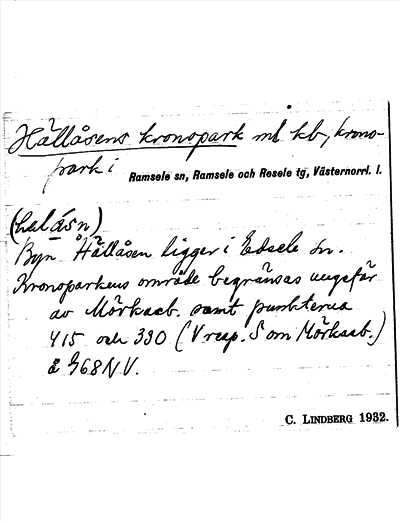 Hällåsens kronopark ml kb, krono-
park i
Ramsele sn, Ramsele och Resele tg, Västernorrl. l.
(halåsn)
Byn Hällåsen ligger i Edsele sn.
Kronoparkens område begränsas ungefär
av Mörksab. samt punkterna
415 och 330 (V resp. S om Mörksab.)
å 968 NV.
C. LINDBERG 1932.